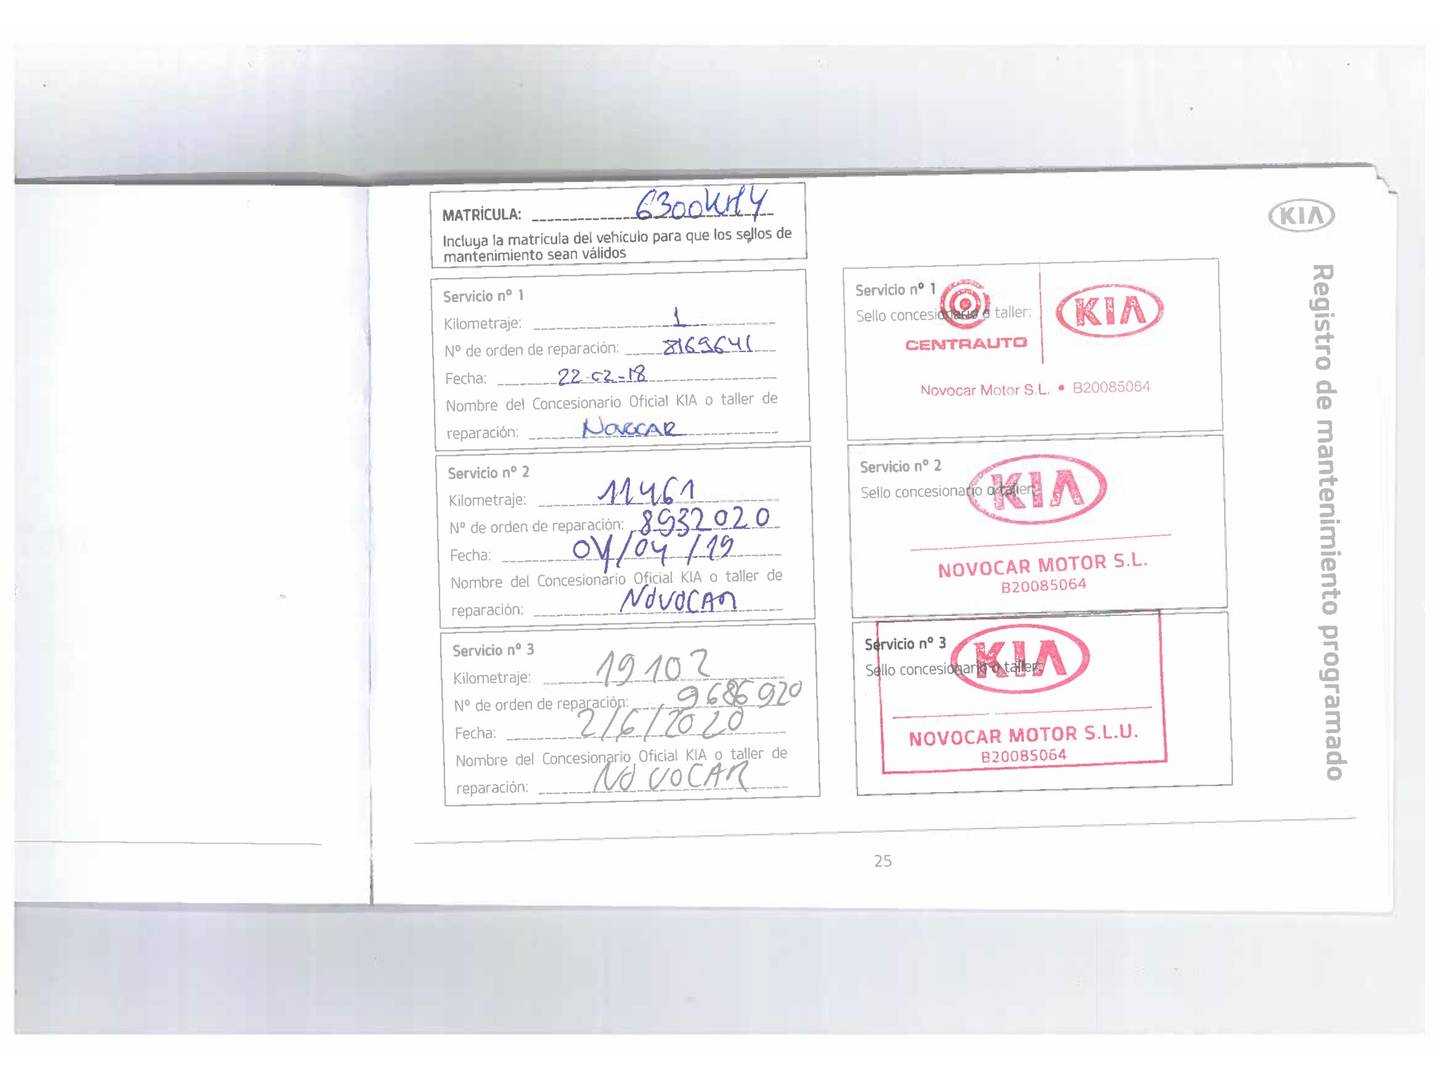 MATRÍCULA: 6300KHY
Incluya la matrícula del vehículo para que los sellos de
mantenimiento sean válidos
Servicio nº 1
Kilometraje: 1
Nº de orden de reparación: 8169641
Fecha: 22-02-18
Nombre del Concesionario Oficial KIA o taller de
reparación: Novocar
Servicio nº 2
Kilometraje: 11461
Nº de orden de reparación: 8932020
Fecha: 04/04/19
Nombre del Concesionario Oficial KIA o taller de
reparación: NOVOCAR
Servicio nº 3
Kilometraje: 19102
Nº de orden de reparación: 9686920
Fecha: 2/6/2020
Nombre del Concesionario Oficial KIA o taller de
reparación: NOVOCAR
Servicio nº 1
Sello concesionario o taller:
CENTRAUTO
KIA
Novocar Motor S.L. • B20085064
Servicio nº 2
Sello concesionario o taller:
KIA
NOVOCAR MOTOR S.L.
B20085064
Servicio nº 3
Sello concesionario o taller:
KIA
NOVOCAR MOTOR S.L.U.
B20085064
KIA
Registro de mantenimiento programado
25